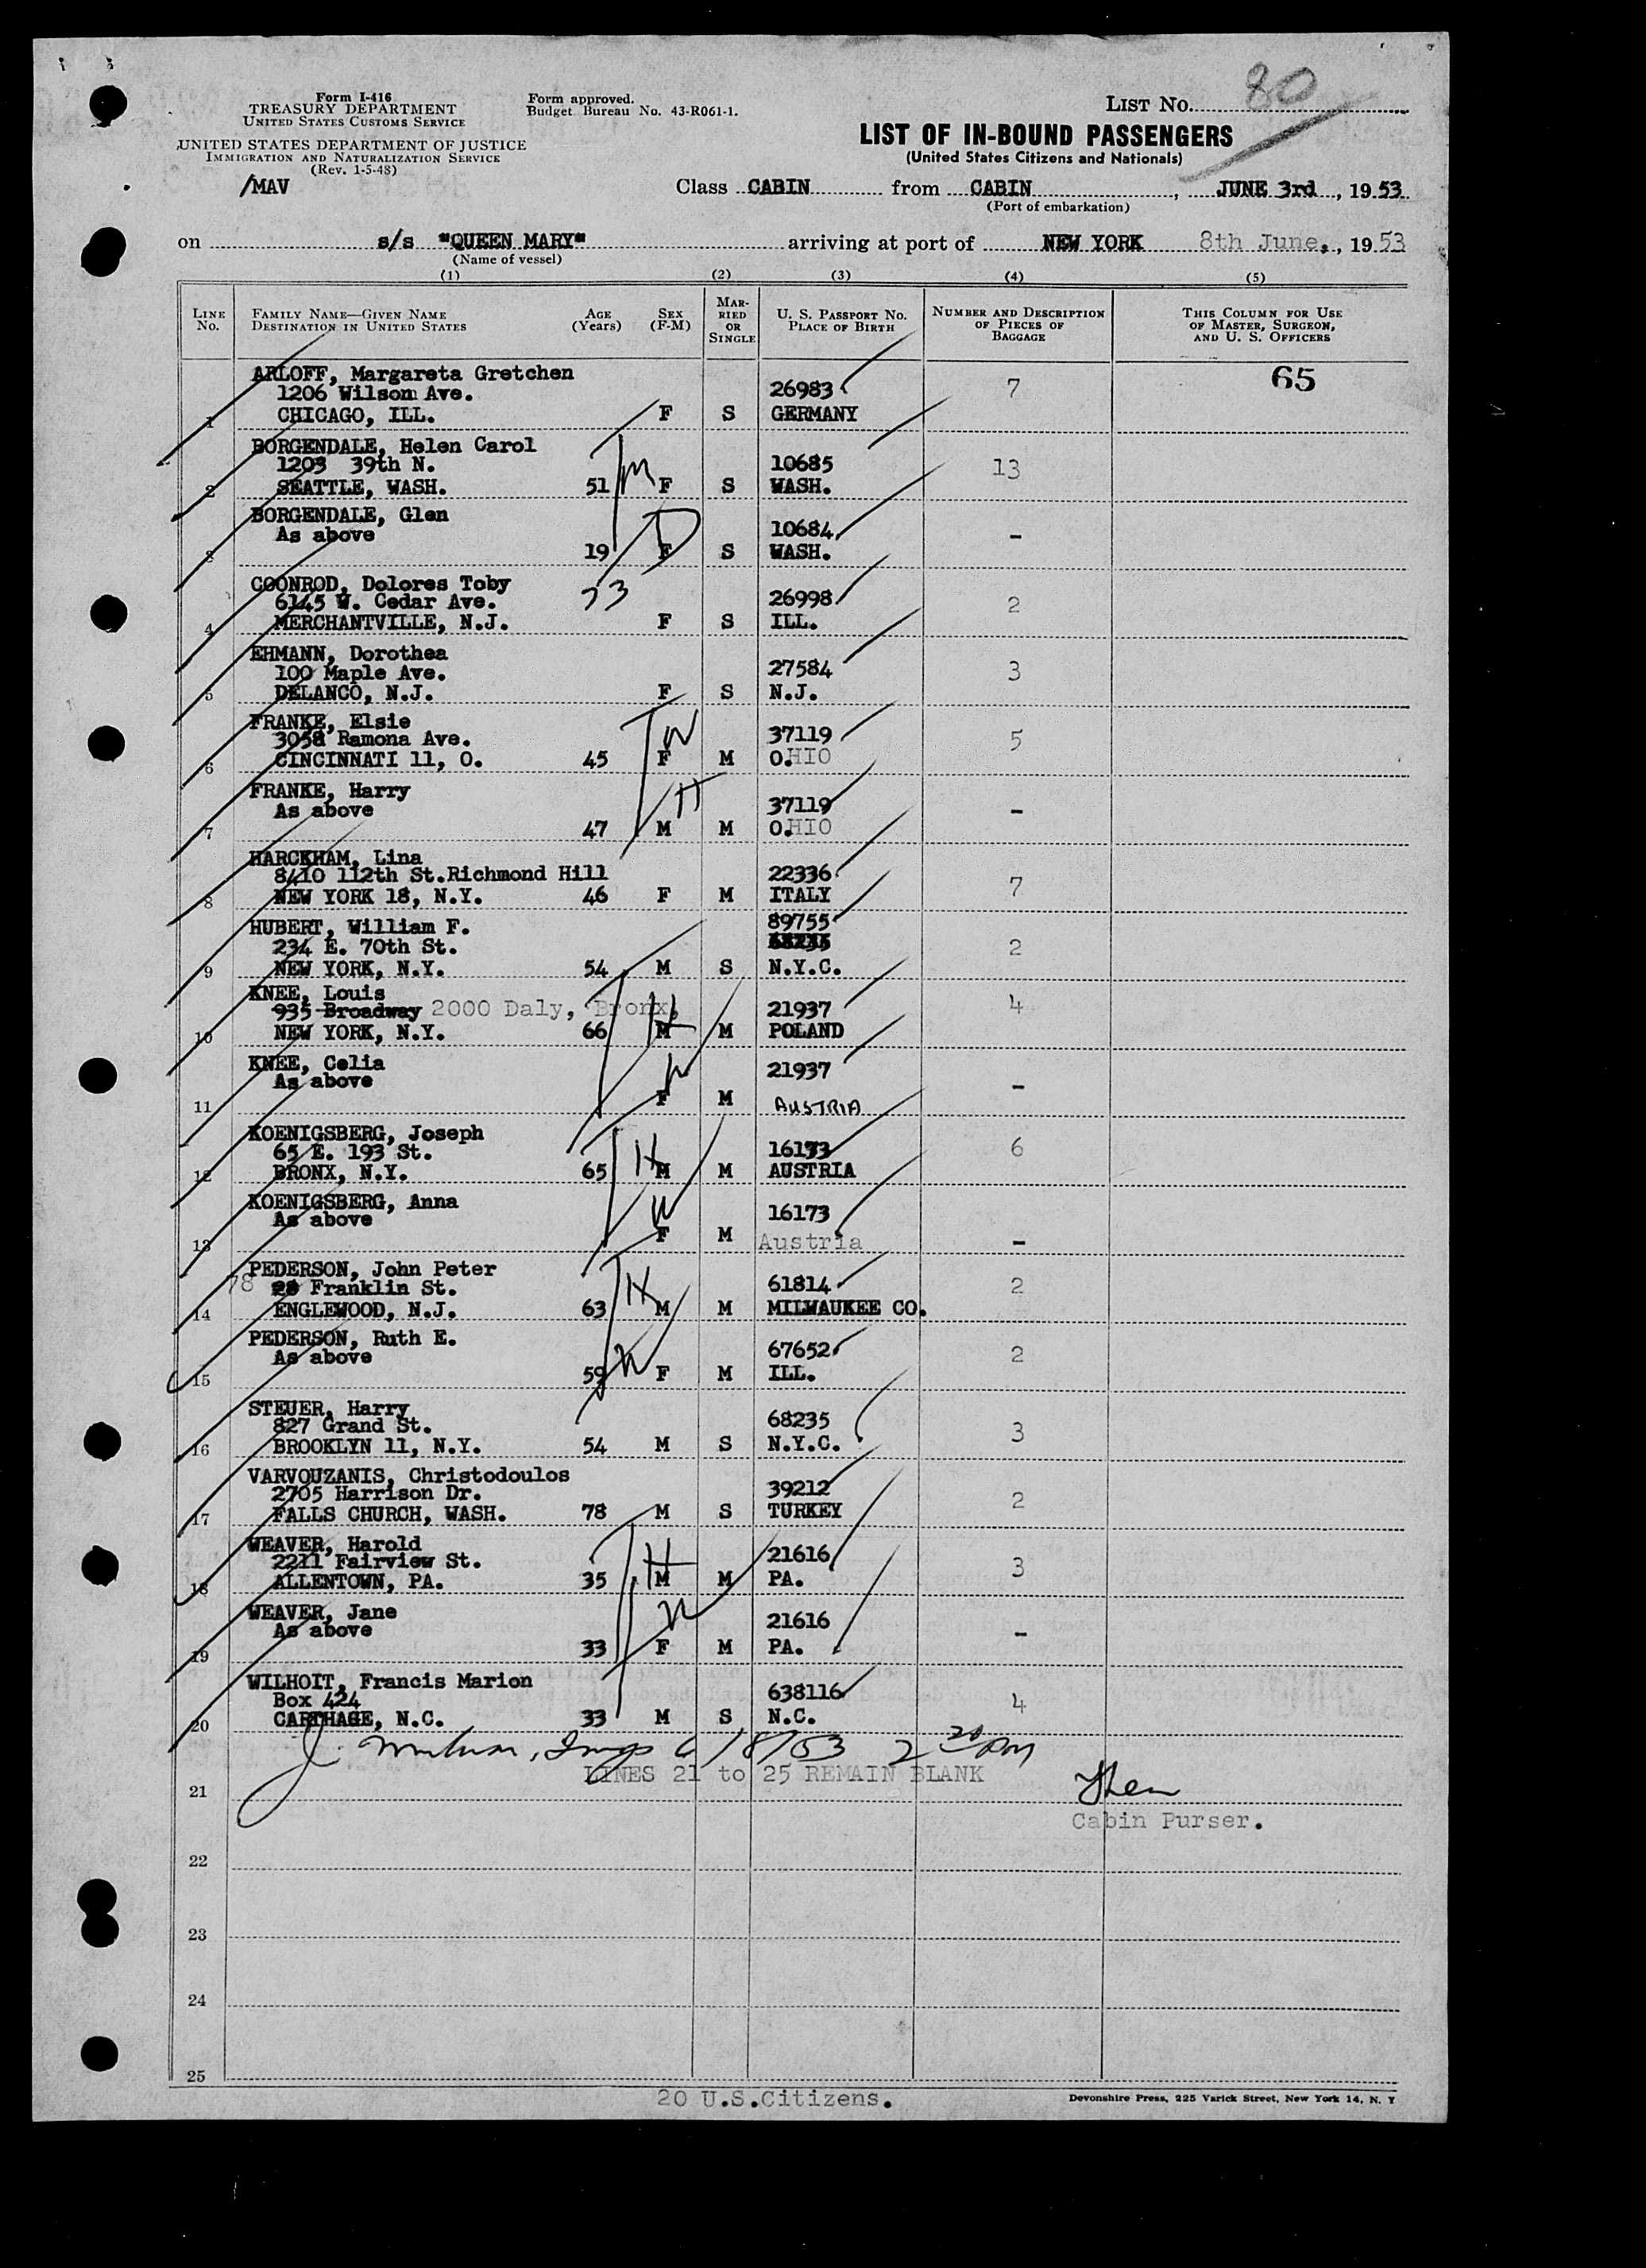 Form I-416
TREASURY DEPARTMENT
UNITED STATES CUSTOMS SERVICE
UNITED STATES DEPARTMENT OF JUSTICE
IMMIGRATION AND NATURALIZATION SERVICE
(Rev. 1-5-48)
/MAV
Form approved.
Budget Bureau No. 43-R061-1.
LIST No. 80
LIST OF IN-BOUND PASSENGERS
(United States Citizens and Nationals)
Class CABIN from CABIN, JUNE 3rd, 1953
(Port of embarkation)
on s/s "QUEEN MARY" arriving at port of NEW YORK 8th June, 1953
(Name of vessel)
(1) (2) (3) (4) (5)
LINE No. FAMILY NAME—GIVEN NAME DESTINATION IN UNITED STATES AGE (Years) SEX (F-M) MARRIED OR SINGLE U. S. PASSPORT NO. PLACE OF BIRTH NUMBER AND DESCRIPTION OF PIECES OF BAGGAGE THIS COLUMN FOR USE OF MASTER, SURGEON, AND U. S. OFFICERS
ARLOFF, Margareta Gretchen 65
1206 Wilson Ave. 26983 7
1 CHICAGO, ILL. F S GERMANY
BORGENDALE, Helen Carol
1203 39th N. 10685 13
2 SEATTLE, WASH. 51 F S WASH.
BORGENDALE, Glen
As above 10684 -
3 19 F S WASH.
COONROD, Dolores Toby 33
6145 W. Cedar Ave. 26998 2
4 MERCHANTVILLE, N.J. F S ILL.
EHMANN, Dorothea
100 Maple Ave. 27584 3
5 DELANCO, N.J. F S N.J.
FRANKE, Elsie
3058 Ramona Ave. 37119 5
6 CINCINNATI 11, O. 45 F M O.HIO
FRANKE, Harry
As above 37119 -
7 47 M M O.HIO
HARCKHAM, Lina
8410 112th St.Richmond Hill 22336 7
8 NEW YORK 18, N.Y. 46 F M ITALY
HUBERT, William F. 89755
234 E. 70th St. 68235 2
9 NEW YORK, N.Y. 54 M S N.Y.C.
KNEE, Louis
935 Broadway 2000 Daly, Bronx, 21937 4
10 NEW YORK, N.Y. 66 M M POLAND
KNEE, Celia
As above 21937 -
11 F M AUSTRIA
KOENIGSBERG, Joseph
65 E. 193 St. 16173 6
12 BRONX, N.Y. 65 M M AUSTRIA
KOENIGSBERG, Anna
As above 16173
13 F M Austria -
PEDERSON, John Peter
78 Franklin St. 61814 2
14 ENGLEWOOD, N.J. 63 M M MILWAUKEE CO.
PEDERSON, Ruth E.
As above 67652 2
15 59 F M ILL.
STEUER, Harry
827 Grand St. 68235 3
16 BROOKLYN 11, N.Y. 54 M S N.Y.C.
VARVOUZANIS, Christodoulos
2705 Harrison Dr. 39212 2
17 FALLS CHURCH, WASH. 78 M S TURKEY
WEAVER, Harold
2211 Fairview St. 21616 3
18 ALLENTOWN, PA. 35 M M PA.
WEAVER, Jane
As above 21616 -
19 33 F M PA.
WILHOIT, Francis Marion
Box 424 638116 4
20 CARTHAGE, N.C. 33 M S N.C.
6/8/53 2 20 PM
LINES 21 to 25 REMAIN BLANK
21
Cabin Purser.
22
23
24
25
20 U.S.Citizens.
Devonshire Press, 225 Varick Street, New York 14, N. Y